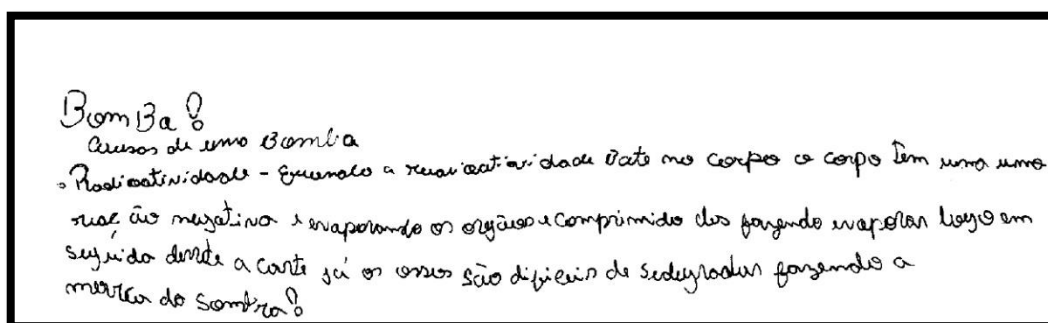 BomBa!
Causas de uma Bomba
• Radioatividade - Quando a radioatividade bate no corpo o corpo tem uma uma
reação negativa e evaporando os orgãos e comprimido dos fazendo evaporar logo em
seguida derrete a carte já os ossos são dificeis de sedegradar fazendo a
marca da sombra!